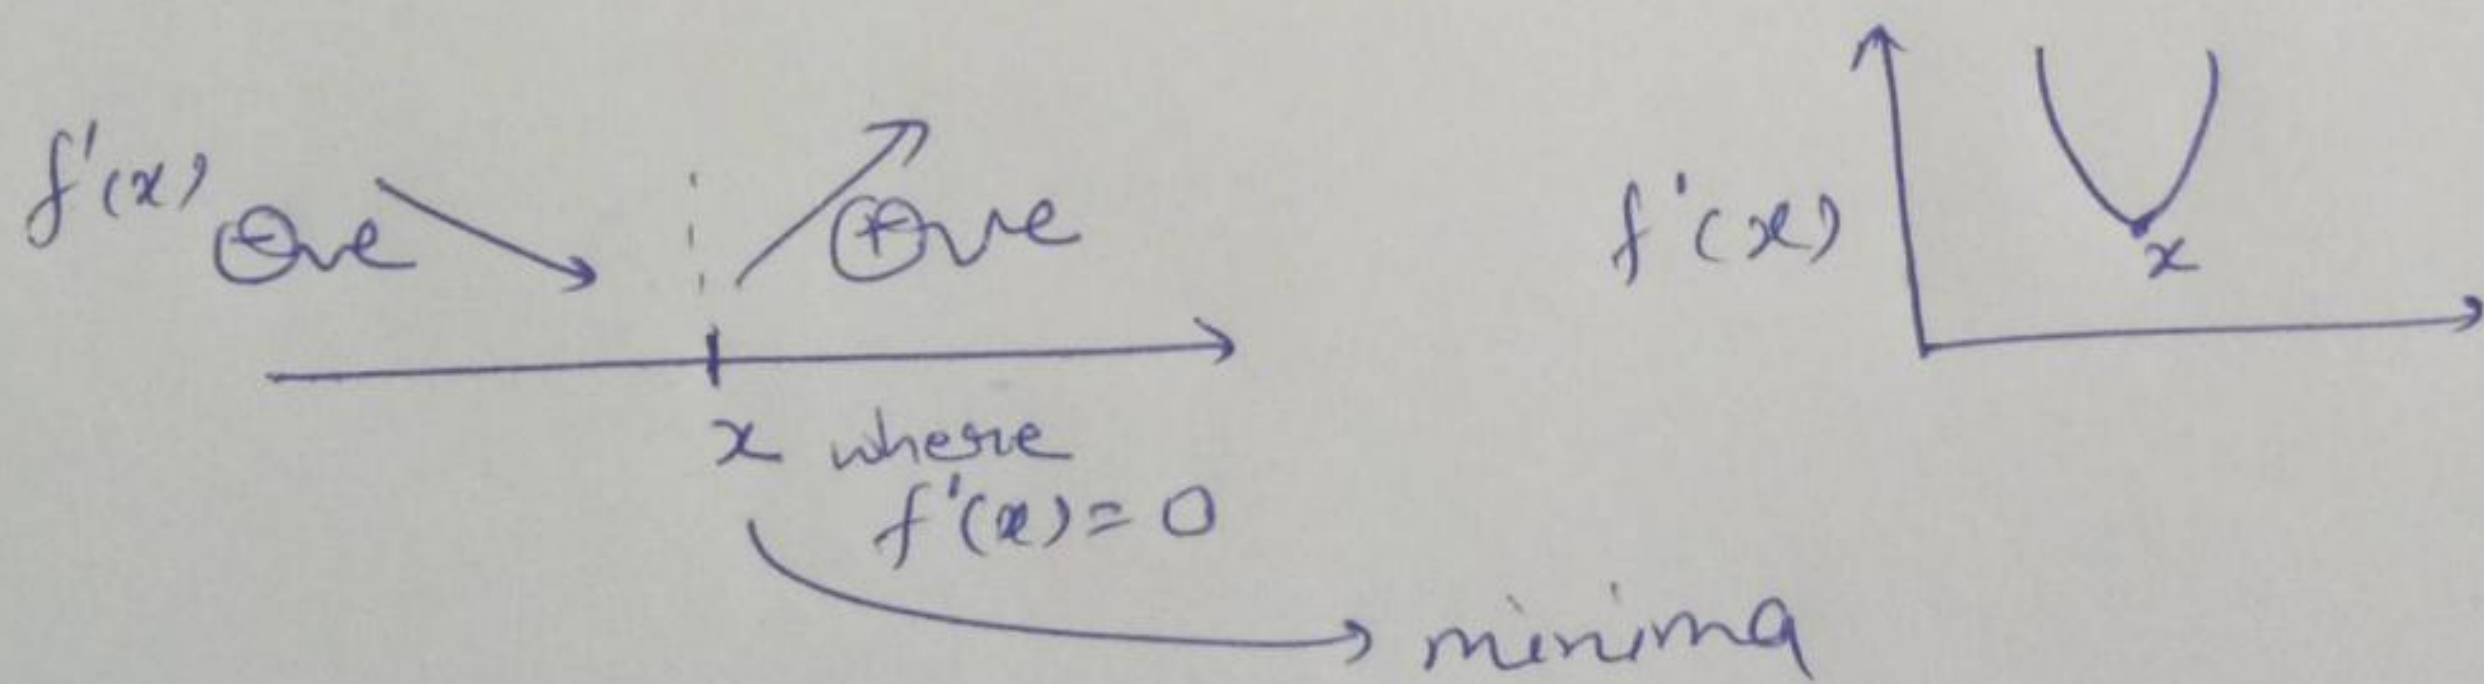 f'(x) ⊖ve ⊕ve
x where
f'(x) = 0
minima
f'(x)
x